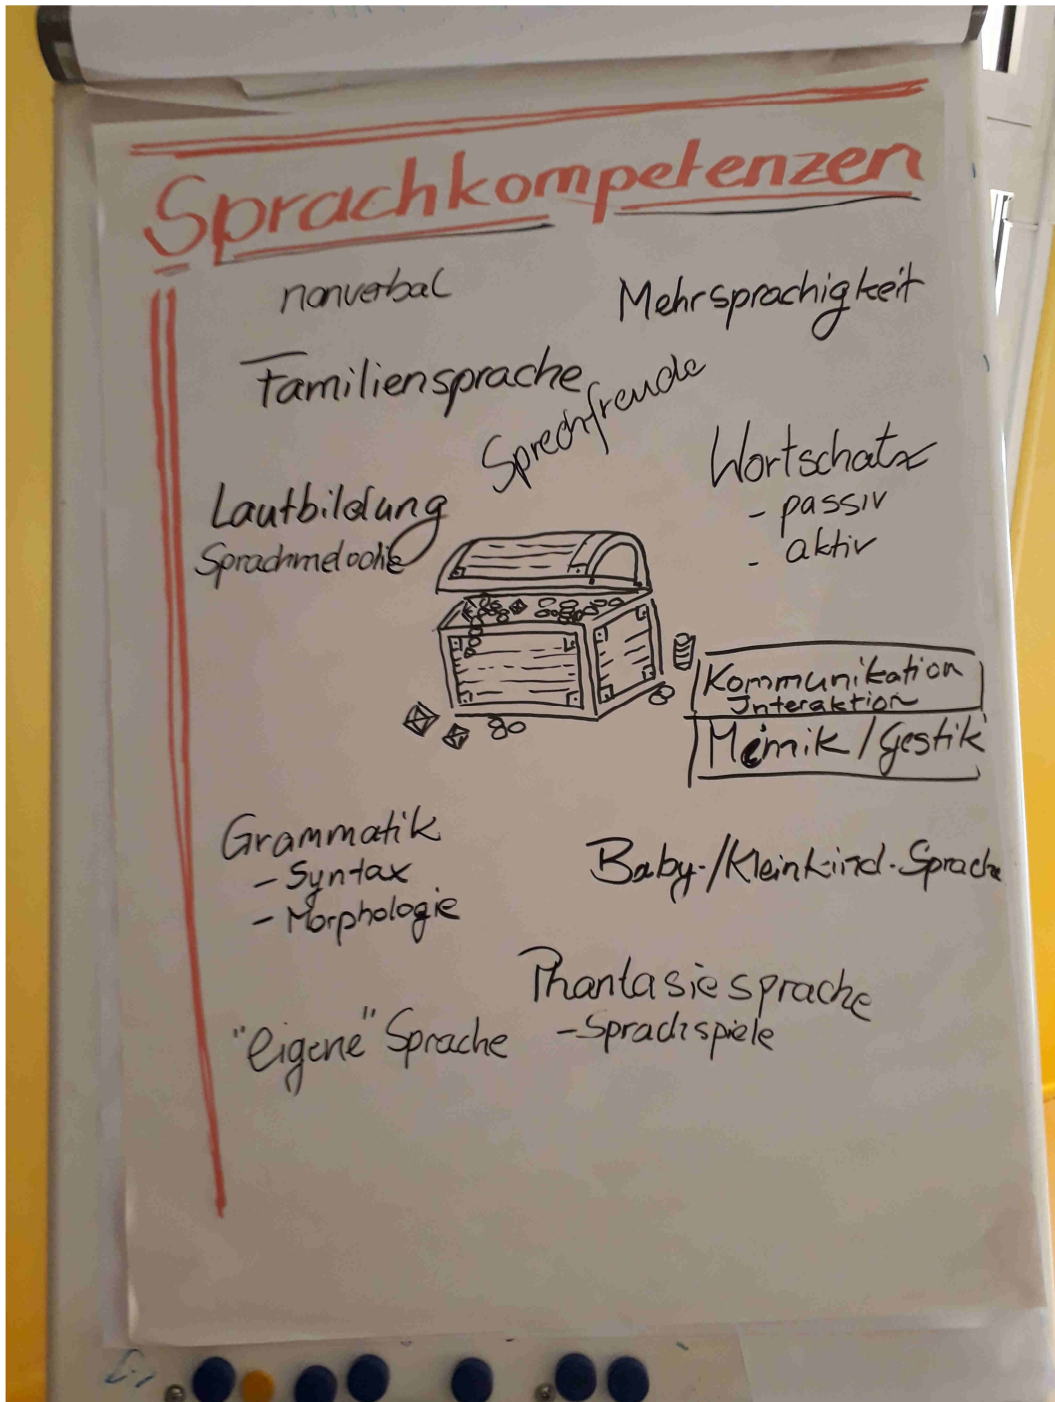 Sprachkompetenzen
nonverbal
Mehrsprachigkeit
Familiensprache
Sprechfreude
Wortschatz
- passiv
- aktiv
Lautbildung
Sprachmelodie
Kommunikation
Interaktion
Mimik / Gestik
Grammatik
- Syntax
- Morphologie
Baby-/Kleinkind-Sprache
Phantasiesprache
- Sprachspiele
"eigene" Sprache